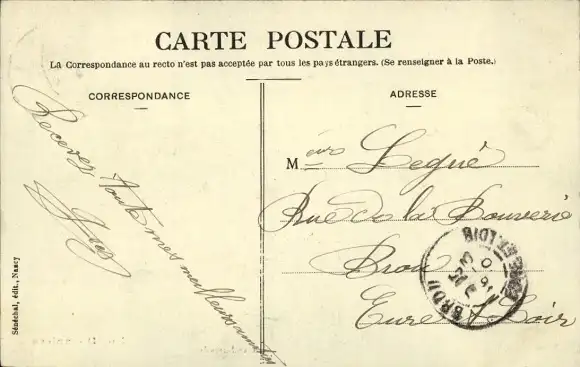 CARTE POSTALE
La Correspondance au recto n'est pas acceptée par tous les pays étrangers. (Se renseigner à la Poste.)
CORRESPONDANCE
Recevez tout mes meilleurs
ADRESSE
Meius Legué
Rue de la Bouverie
Brou
Eure et Loir
EURE-ET-LOIR
Sénéchal, édit., Nancy